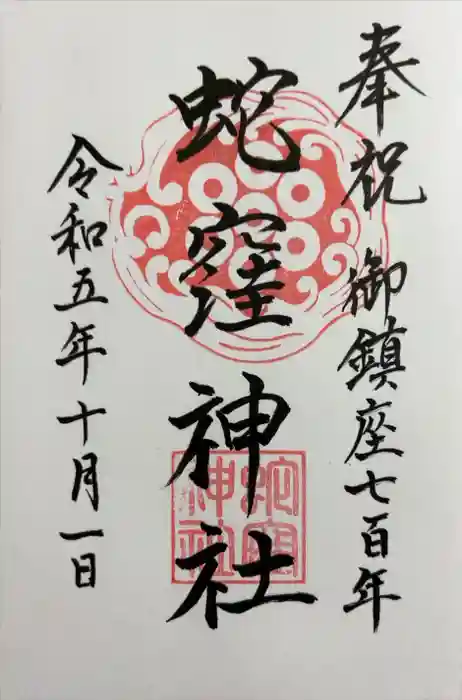 奉祝 御鎮座七百年
蛇窪神社
蛇窪神社
令和五年十月一日